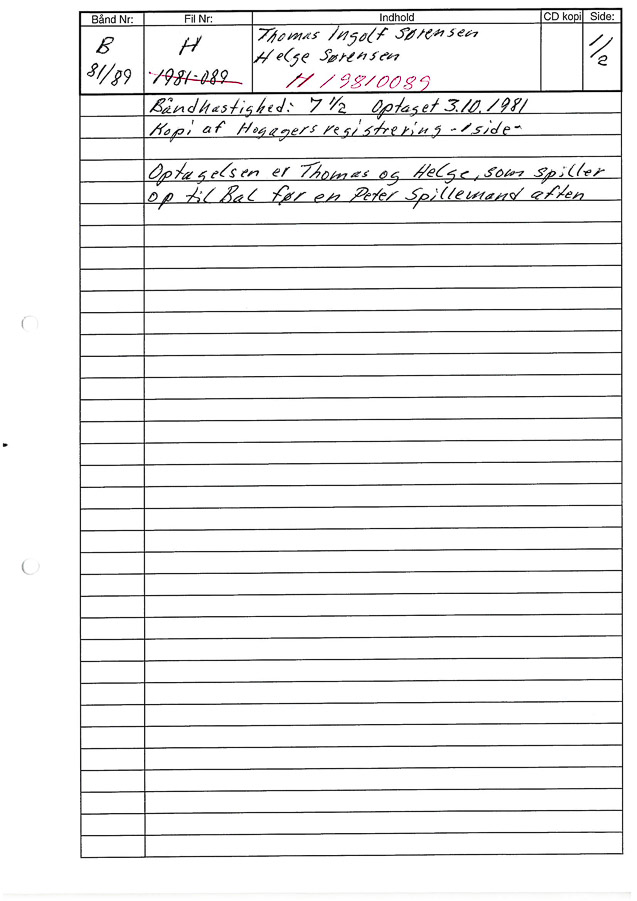 Bånd Nr: Fil Nr: Indhold CD kopi Side:
B H Thomas Ingolf Sørensen 1/2
Helge Sørensen
81/89 1981-089 H 19810089
Båndhastighed: 7 1/2 Optaget 3.10.1981
Kopi af Hogagers registrering -1 side-
Optagelsen er Thomas og Helge, som spiller
op til Bal før en Peter Spillemand aften